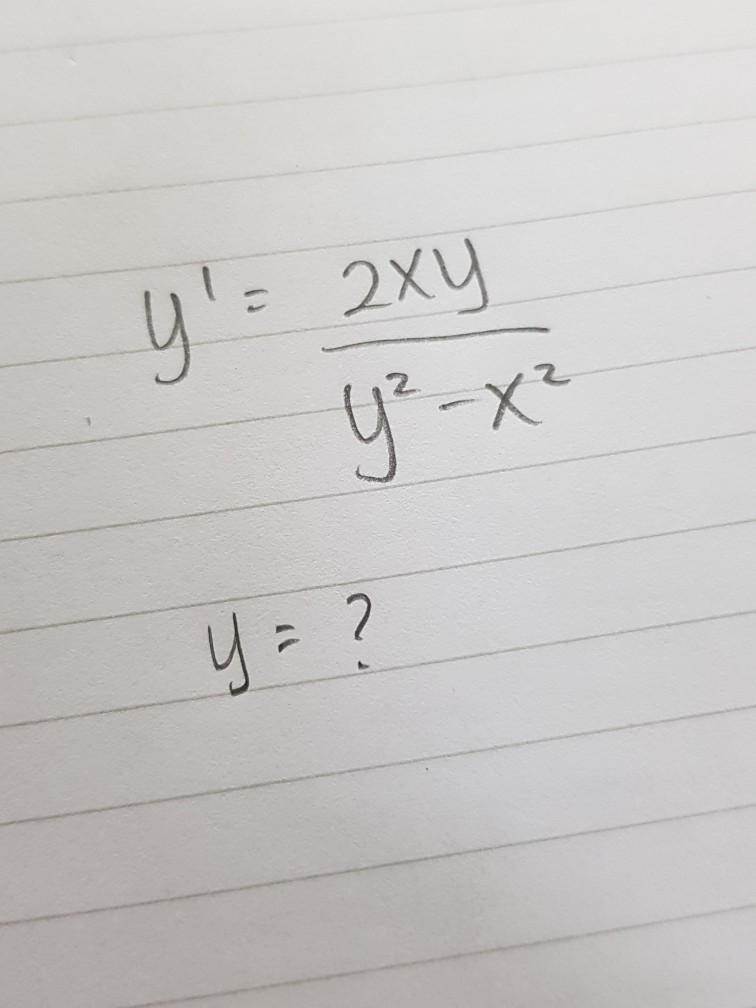 y' = 2xy / y² - x²
y = ?